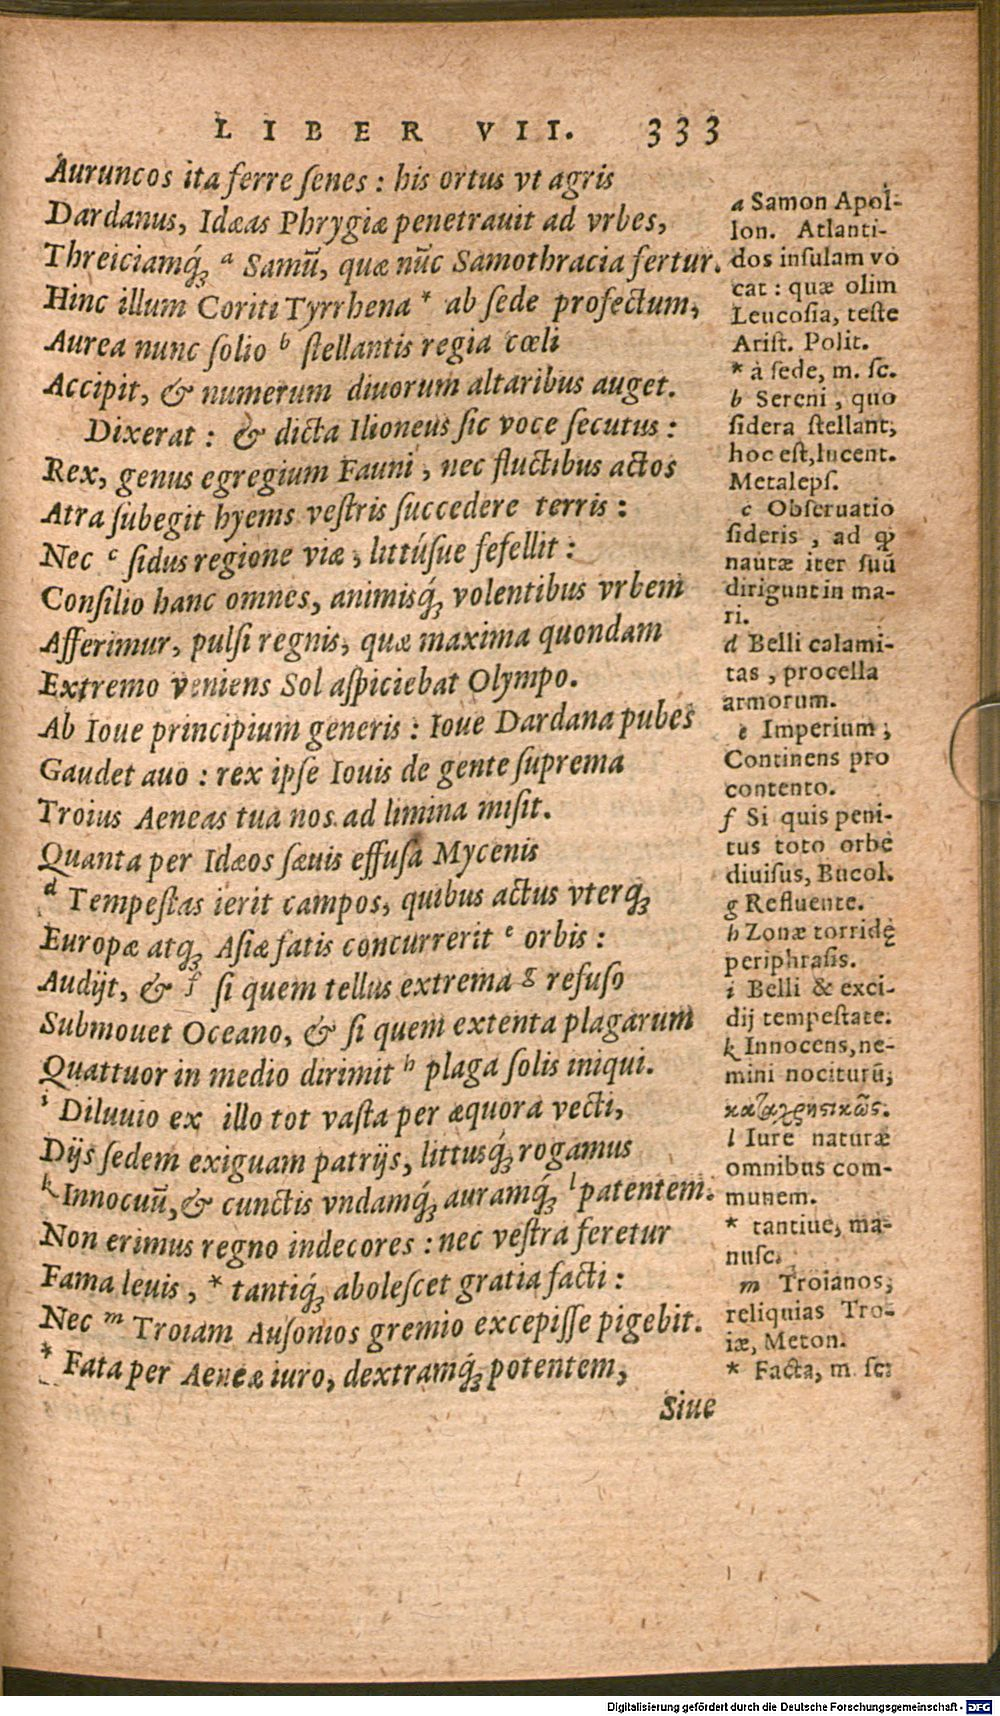 LIBER VII. 333
Auruncos ita ferre ſenes : his ortus vt agris
Dardanus, Idæas Phrygiæ penetrauit ad vrbes,
Threiciamq́; ᵃ Samū, quæ nūc Samothracia fertur.
Hinc illum Coriti Tyrrhena * ab ſede profectum,
Aurea nunc ſolio ᵇ ſtellantis regia cœli
Accipit, & numerum diuorum altaribus auget.
Dixerat : & dicta Ilioneus ſic voce ſecutus :
Rex, genus egregium Fauni, nec fluctibus actos
Atra ſubegit hyems veſtris ſuccedere terris :
Nec ᶜ ſidus regione viæ, littúſue fefellit :
Conſilio hanc omnes, animisq́; volentibus vrbem
Afferimur, pulſi regnis, quæ maxima quondam
Extremo veniens Sol aſpiciebat Olympo.
Ab Ioue principium generis : Ioue Dardana pubes
Gaudet auo : rex ipſe Iouis de gente ſuprema
Troius Aeneas tua nos ad limina miſit.
Quanta per Idæos ſæuis effuſa Mycenis
ᵈ Tempeſtas ierit campos, quibus actus vterq;
Europæ atq; Aſiæ fatis concurrerit ᵉ orbis :
Audijt, & ᶠ ſi quem tellus extrema ᵍ refuſo
Submouet Oceano, & ſi quem extenta plagarum
Quattuor in medio dirimit ʰ plaga ſolis iniqui.
ⁱ Diluuio ex illo tot vaſta per æquora vecti,
Dijs ſedem exiguam patrijs, littusq́; rogamus
ᵏ Innocuū, & cunctis vndamq́; auramq́; ˡ patentem.
Non erimus regno indecores : nec veſtra feretur
Fama leuis, * tantiq́; aboleſcet gratia facti :
Nec ᵐ Troiam Auſonios gremio excepiſſe pigebit.
* Fata per Aeneæ iuro, dextramq́; potentem,
Siue
a Samon Apol-
lon. Atlanti-
dos inſulam vo
cat : quæ olim
Leucoſia, teſte
Ariſt. Polit.
* à ſede, m. ſc.
b Sereni, quo
ſidera ſtellant,
hoc eſt, lucent.
Metalepſ.
c Obſeruatio
ſideris, ad ꝙ
nautæ iter ſuū
dirigunt in ma-
ri.
d Belli calami-
tas, procella
armorum.
e Imperium,
Continens pro
contento.
f Si quis peni-
tus toto orbe
diuiſus, Bucol.
g Refluente.
h Zonæ torridę
periphraſis.
i Belli & exci-
dij tempeſtate.
k Innocens, ne-
mini nociturū,
καταχρηστικῶς.
l Iure naturæ
omnibus com-
munem.
* tantiue, ma-
nuſc.
m Troianos,
reliquias Tro-
iæ, Meton.
* Facta, m. ſc:
Digitalisierung gefördert durch die Deutsche Forschungsgemeinschaft - DFG